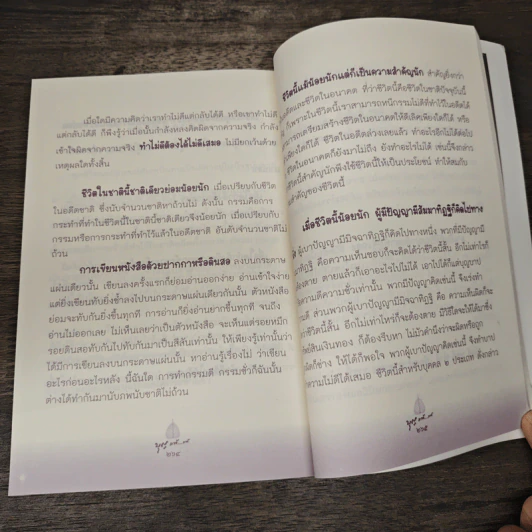 เมื่อใดมีความคิดว่าเราทำไม่ดีแต่กลับได้ดี หรือเขาทำไม่ดี
แต่กลับได้ดี ก็พึงรู้ว่าเมื่อนั้นกำลังหลงคิดผิดจากความจริง กำลัง
เข้าใจผิดจากความจริง ทำไม่ดีต้องได้ไม่ดีเสมอ ไม่มียกเว้นด้วย
เหตุผลใดทั้งสิ้น
ชีวิตในชาตินี้ชาติเดียวย่อมน้อยนัก เมื่อเปรียบกับชีวิต
ในอดีตชาติ ซึ่งนับจำนวนชาติหาถ้วนไม่ ดังนั้น กรรมคือการ
กระทำที่ทำในชีวิตนี้ในชาตินี้ชาติเดียวจึงน้อยนัก เมื่อเปรียบกับ
กรรมหรือการกระทำที่ทำไว้แล้วในอดีตชาติ อันนับจำนวนชาติไม่ถ้วน
การเขียนหนังสือด้วยปากกาหรือดินสอ ลงบนกระดาษ
แผ่นเดียวนั้น เขียนลงครั้งแรกก็ย่อมอ่านออกง่าย อ่านเข้าใจง่าย
แต่ยิ่งเขียนทับยิ่งซ้ำลงไปบนกระดาษแผ่นเดียวกันนั้น ตัวหนังสือ
ย่อมจะทับกันยิ่งขึ้นทุกที การอ่านก็ยิ่งอ่านยากขึ้นทุกที จนถึง
อ่านไม่ออกเลย ไม่เห็นเลยว่าเป็นตัวหนังสือ จะเห็นแต่รอยหมึก
รอยดินสอทับกันไปทับกันมาเป็นสีสันเท่านั้น ให้เพียงรู้เท่านั้นว่า
ได้มีการเขียนลงบนกระดาษแผ่นนั้น หาอ่านรู้เรื่องไม่ ว่าเขียน
อะไรก่อนอะไรหลัง นี้ฉันใด การทำกรรมดี กรรมชั่วก็ฉันนั้น
ต่างได้ทำกันมานับภพนับชาติไม่ถ้วน
๒๖๔
ชีวิตนี้แม้น้อยนักแต่ก็เป็นความสำคัญนัก สำคัญยิ่งกว่า
ในอดีตและชีวิตในอนาคต ที่ว่าชีวิตนี้คือชีวิตในชาติปัจจุบันนี้
ก็เพราะในชีวิตนี้เราสามารถหนีกรรมไม่ดีที่ทำไว้ในอดีตได้
สามารถเตรียมสร้างชีวิตในอนาคตให้ดีเลิศเพียงใดก็ได้ หรือ
เพียงใดก็ได้ ชีวิตในอดีตล่วงเลยแล้ว ทำอะไรอีกไม่ได้ต่อไป
ชีวิตในอนาคตก็ยังมาไม่ถึง ยังทำอะไรไม่ได้ เช่นนี้จึงกล่าว
ชีวิตนี้สำคัญนักพึงใช้ชีวิตนี้ให้เป็นประโยชน์ ทำให้สมกับ
ความสำคัญของชีวิตนี้
เมื่อชีวิตนี้น้อยนัก ผู้มีปัญญามีสัมมาทิฏฐิก็คิดไปทาง
ผู้เบาปัญญามีมิจฉาทิฏฐิก็คิดไปทางหนึ่ง พวกที่มีปัญญามี
ทิฏฐิ คือความเห็นชอบก็จะคิดได้ว่าชีวิตนี้สั้น อีกไม่เท่าไรก็
ต้องตาย ตายแล้วก็เอาอะไรไปไม่ได้ เอาไปได้ก็แต่บุญบาป
ความดีความชั่วเท่านั้น พวกมีปัญญาคิดเช่นนี้ จึงเร่งทำ
ดี ส่วนพวกผู้เบาปัญญามีมิจฉาทิฏฐิ คือ ความเห็นผิดก็จะ
ชีวิตนี้สั้น อีกไม่เท่าไหร่ก็จะต้องตาย มีวิธีใดจะให้ได้มาซึ่ง
ทรัพย์สินเงินทอง ก็ต้องรีบหา ไม่มัวคำนึงว่าจะผิดหรือถูก
ผิดก็ช่าง ให้ได้ก็พอใจ พวกผู้เบาปัญญาคิดเช่นนี้ จึงทำบาป
ความไม่ดีได้เสมอ ชีวิตนี้สำหรับบุคคล ๒ ประเภท ดังกล่าว
๒๖๕